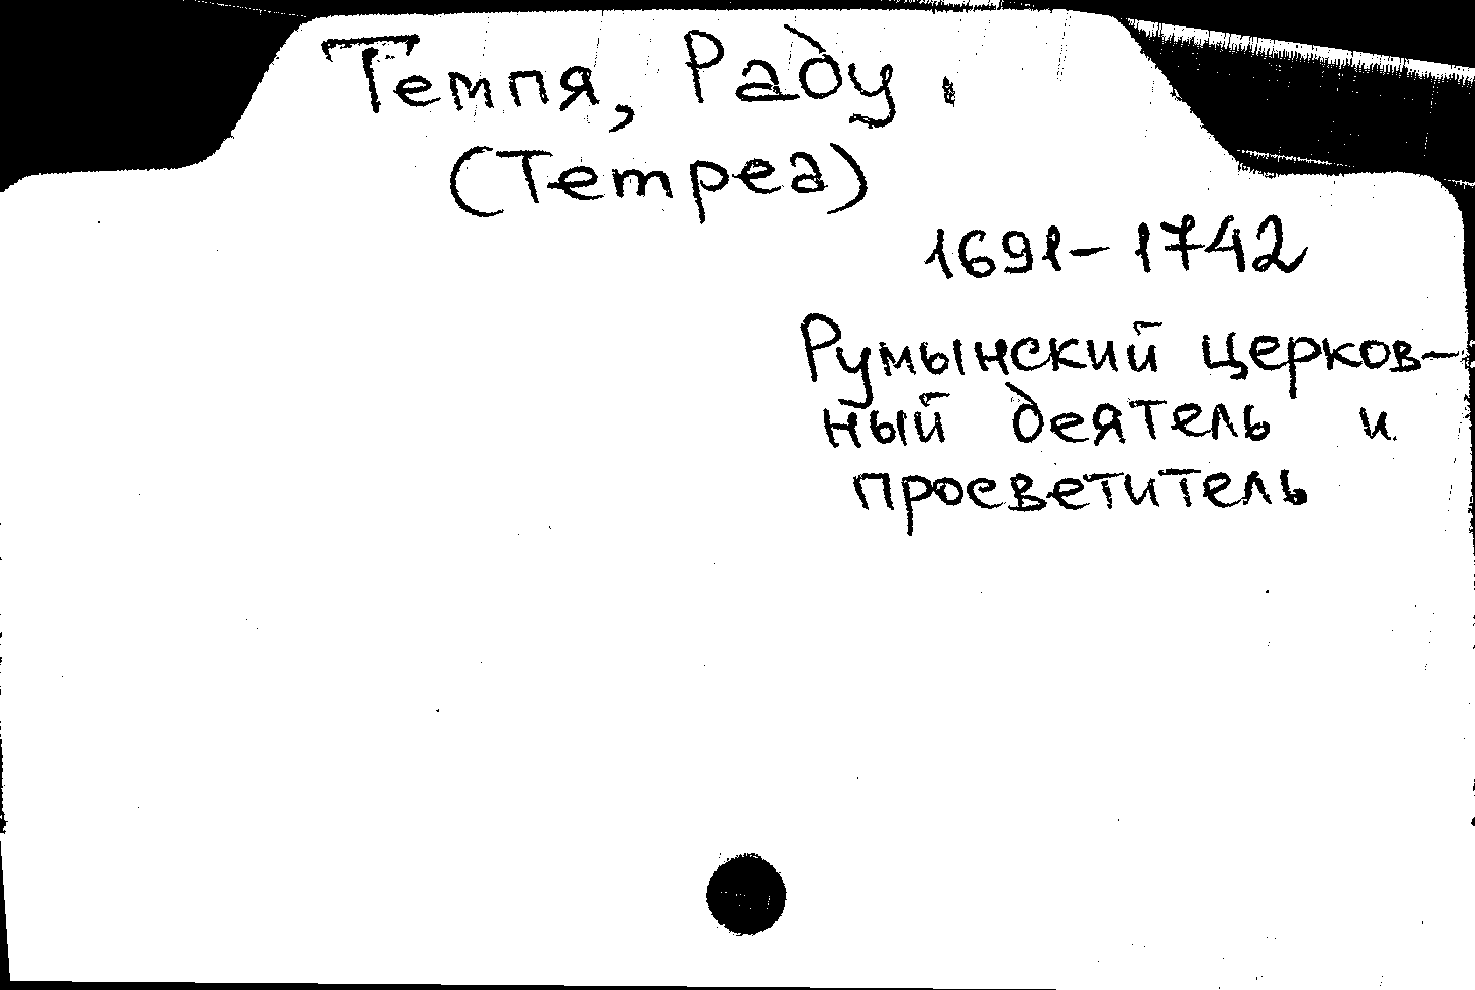 Темпя, Раду.
(Tempea)
1691-1742
Румынский церков-
ный деятель и
просветитель